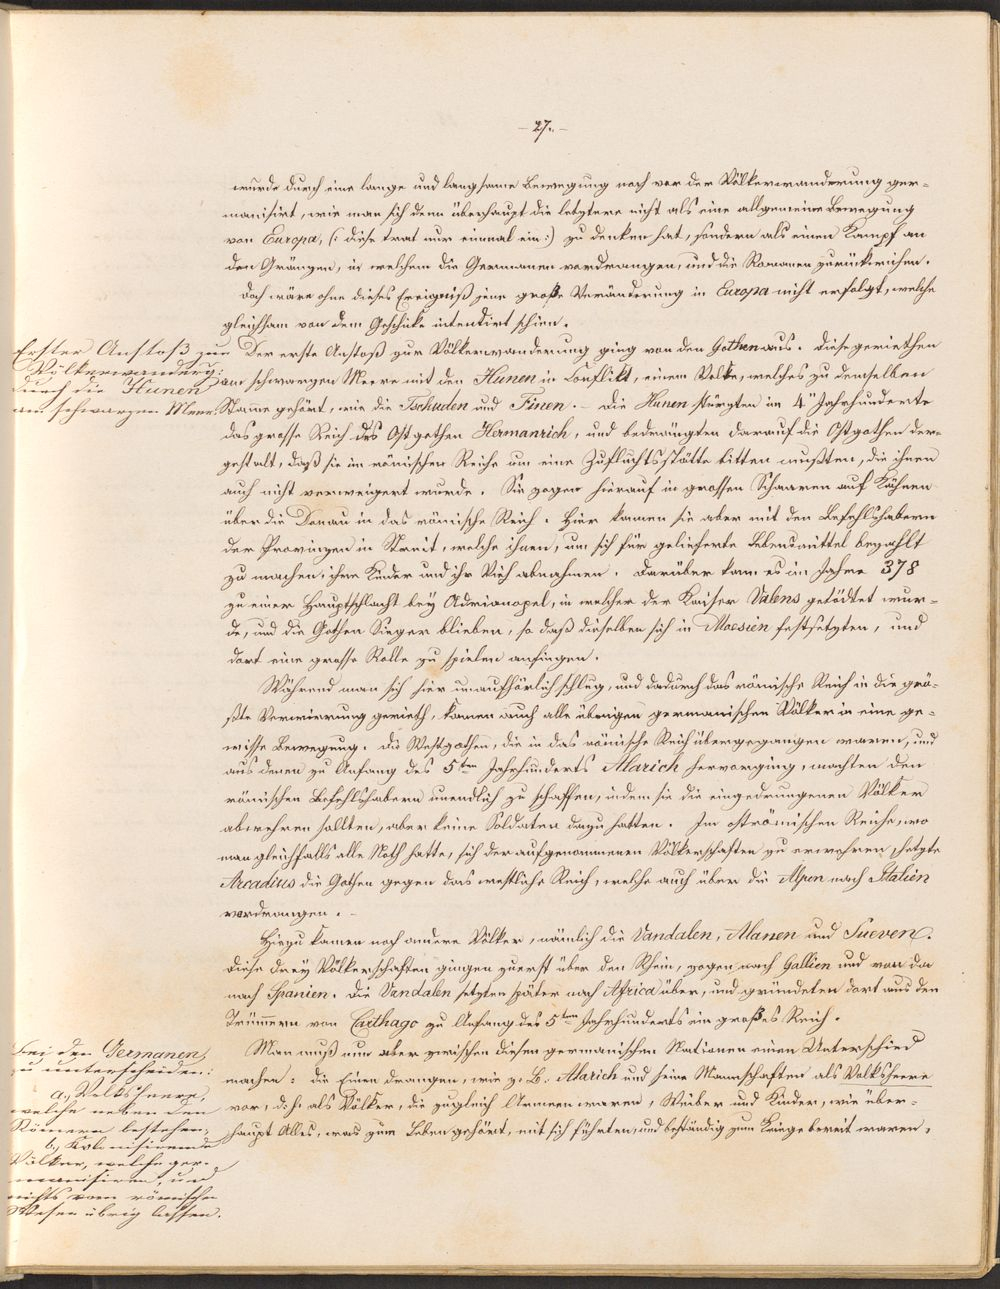 - 27. -
wurde durch eine lange und langsame Bewegung noch vor der Völkerwanderung ger-
manisirt, wie man sich denn überhaupt die letztere nicht als eine allgemeine Bewegung
von Europa, (: diese trat nur einmal ein :) zu denken hat, sondern als einen Kampf an
den Gränzen, in welchem die Germanen vordrangen, und die Romanen zurückwichen.
Doch wäre ohne dieses Ereigniß jene große Veränderung in Europa nicht erfolgt, welche
gleichsam von dem Geschicke intentirt schien.
Erster Anstoß zur
Völkerwanderg:
durch die Hunen
am schwarzen Meer.
Der erste Anstoß zur Völkerwanderung ging von den Gothen aus. Diese geriethen
am schwarzen Meere mit den Hunen in Conflikt, einem Volke, welches zu demselben
Stamme gehört, wie die Tschuden und Finen. - Die Hunen stürzten im 4" Jahrhunderte
das grosse Reich des Ostgothen Hermanrich, und bedrängten darauf die Ostgothen der-
gestalt, daß sie im römischen Reiche um eine Zufluchtsstätte bitten mußten, die ihnen
auch nicht verweigert wurde. Sie zogen hierauf in grossen Schaaren auf Kähnen
über die Donau in das römische Reich. Hier kamen sie aber mit den Befehlshabern
der Provinzen in Streit, welche ihnen, um sich für gelieferte Lebensmittel bezahlt
zu machen, ihre Kinder und ihr Vieh abnahmen. Darüber kam es im Jahre 378
zu einer Hauptschlacht bey Adrianopel, in welcher der Kaiser Valens getödtet wur-
de, und die Gothen Sieger blieben, so daß dieselben sich in Moesien festsetzten, und
dort eine grosse Rolle zu spielen anfingen.
Während man sich hier unaufhörlich schlug, und dadurch das römische Reich in die grö-
ßte Verwirrung gerieth, kamen auch alle übrigen germanischen Völker in eine ge-
wisse Bewegung. Die Westgothen, die in das römische Reich übergegangen waren, und
aus denen zu Anfang des 5ten Jahrhunderts Alarich hervorging, machten den
römischen Befehlshabern unendlich zu schaffen, indem sie die eingedrungenen Völker
abwehren sollten, aber keine Soldaten dazu hatten. Im oströmischen Reiche, wo
man gleichfalls alle Noth hatte, sich der aufgenommenen Völkerschaften zu erwehren, setzte
Arcadius die Gothen gegen das westliche Reich, welche auch über die Alpen nach Italien
vordrangen. -
Hiezu kamen noch andere Völker, nämlich die Vandalen, Alanen und Sueven.
Diese drey Völkerschaften gingen zuerst über den Rhein, zogen nach Gallien und von da
nach Spanien. Die Vandalen setzten später nach Africa über, und gründeten dort aus den
Trümmern von Carthago zu Anfang des 5ten Jahrhunderts ein großes Reich.
Bei den Germanen
zu unterscheiden:
a, Volksheere,
welche neben den
Römern bestehen;
b, Kolonisirende
Völker, welche ger-
manisiren, und
nichts vom römischen
Wesen übrig lassen.
Man muß nun aber zwischen diesen germanischen Nationen einen Unterschied
machen: die Einen drangen, wie z. B. Alarich und seine Mannschaften als Volksheere
vor, d. h. als Völker, die zugleich Armeen waren, Weiber und Kinder, wie über-
haupt Alles, was zum Leben gehört, mit sich führten, und beständig zum Kriege bereit waren,